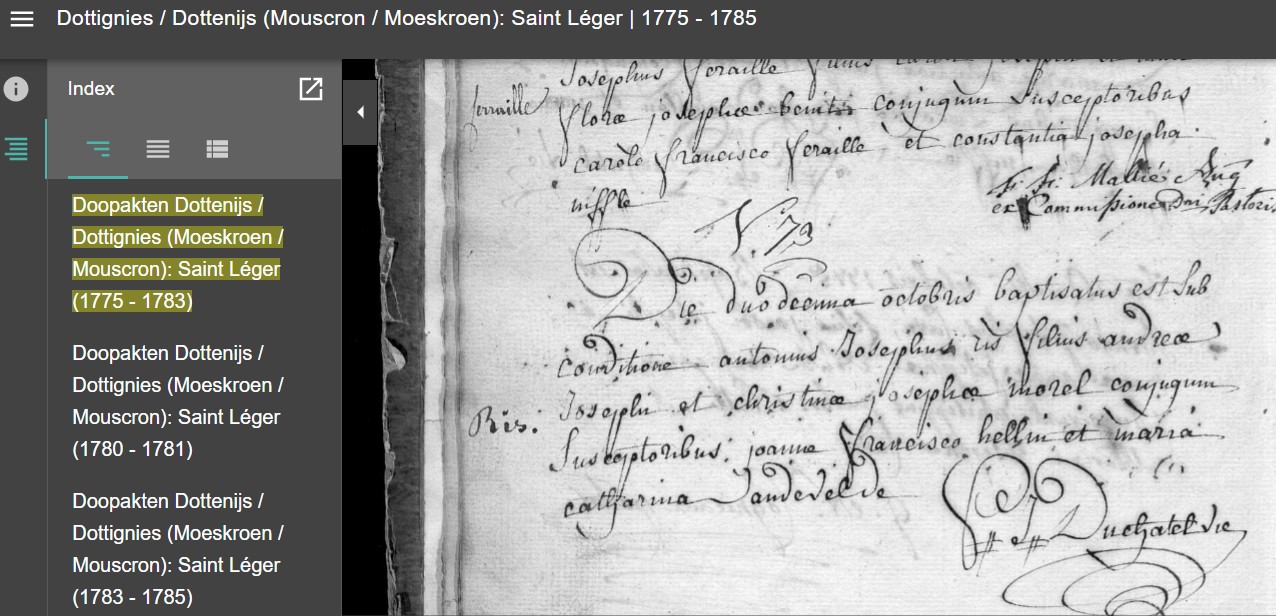 Dottignies / Dottenijs (Mouscron / Moeskroen): Saint Léger | 1775 - 1785
Index
Doopakten Dottenijs /
Dottignies (Moeskroen /
Mouscron): Saint Léger
(1775 - 1783)
Doopakten Dottenijs /
Dottignies (Moeskroen /
Mouscron): Saint Léger
(1780 - 1781)
Doopakten Dottenijs /
Dottignies (Moeskroen /
Mouscron): Saint Léger
(1783 - 1785)
Josephus feraille filius
ferraille
floræ josephæ conjugum Susceptoribus
carolo francisco feraille et constantia josepha
niffle
fr. fr. Aug
ex Commissione Dni Pastoris
Die duodecima octobris baptisatus est sub
conditione antonius Josephus ris filius andreæ
Ris:
Josephi et christinæ josephæ morel conjugum
Susceptoribus: joanne francisco hellin et maria
catharina Vandevelde
Duchatel